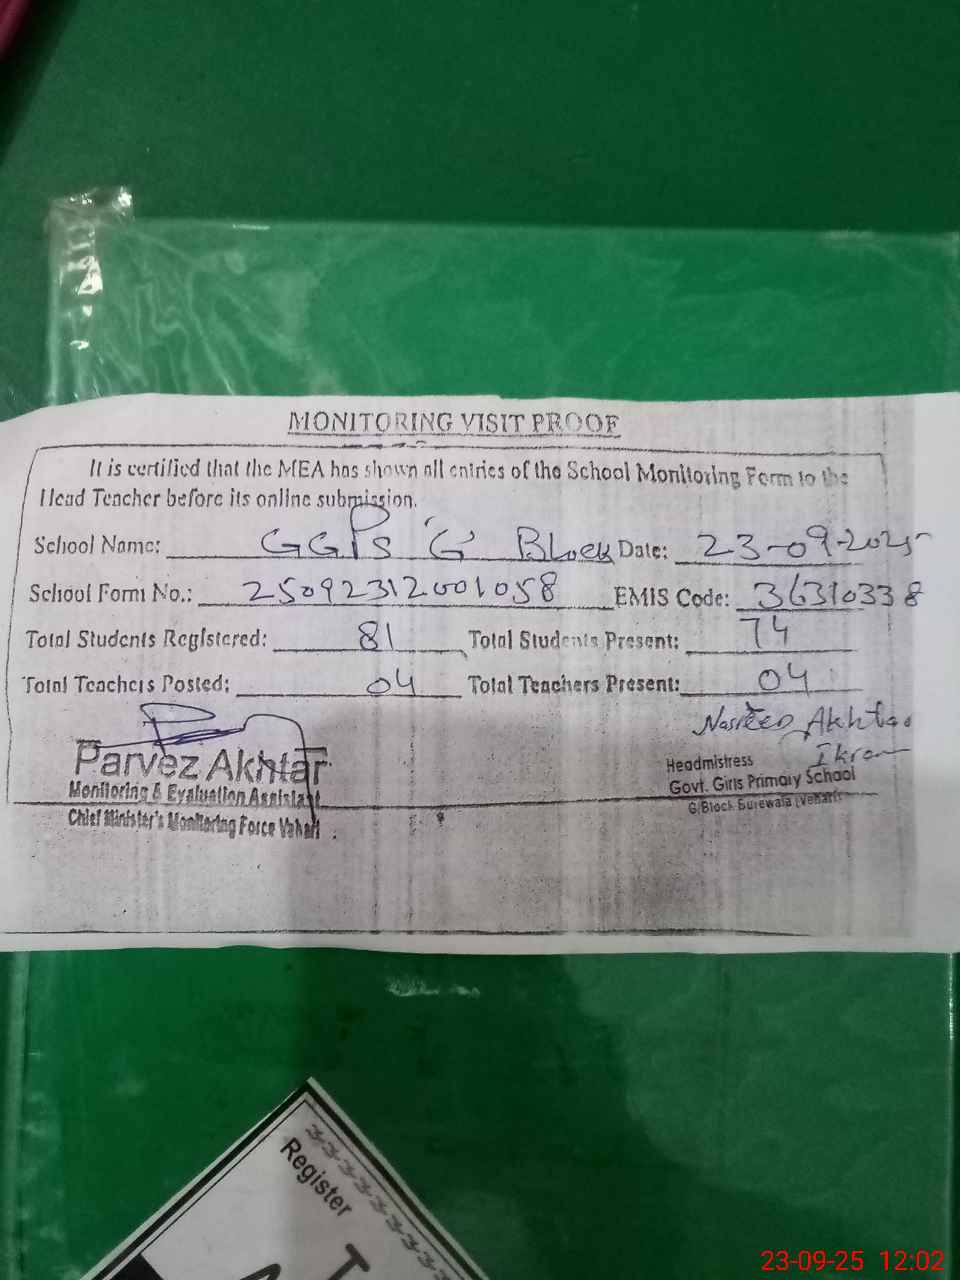 MONITORING VISIT PROOF
It is certified that the MEA has shown all entries of the School Monitoring Form to the
Head Teacher before its online submission.
School Name: GGPS 'G' Block Date: 23-09-2025
School Form No.: 25092312001058 EMIS Code: 36310338
Total Students Registered: 81 Total Students Present: 74
Total Teachers Posted: 04 Total Teachers Present: 04
Nasreen Akhtar
Ikram
Parvez Akhtar
Monitoring & Evaluation Assistant
Chief Minister's Monitoring Force Vehari
Headmistress
Govt. Girls Primary School
G/Block Burewala (Vehari)
Register
23-09-25 12:02